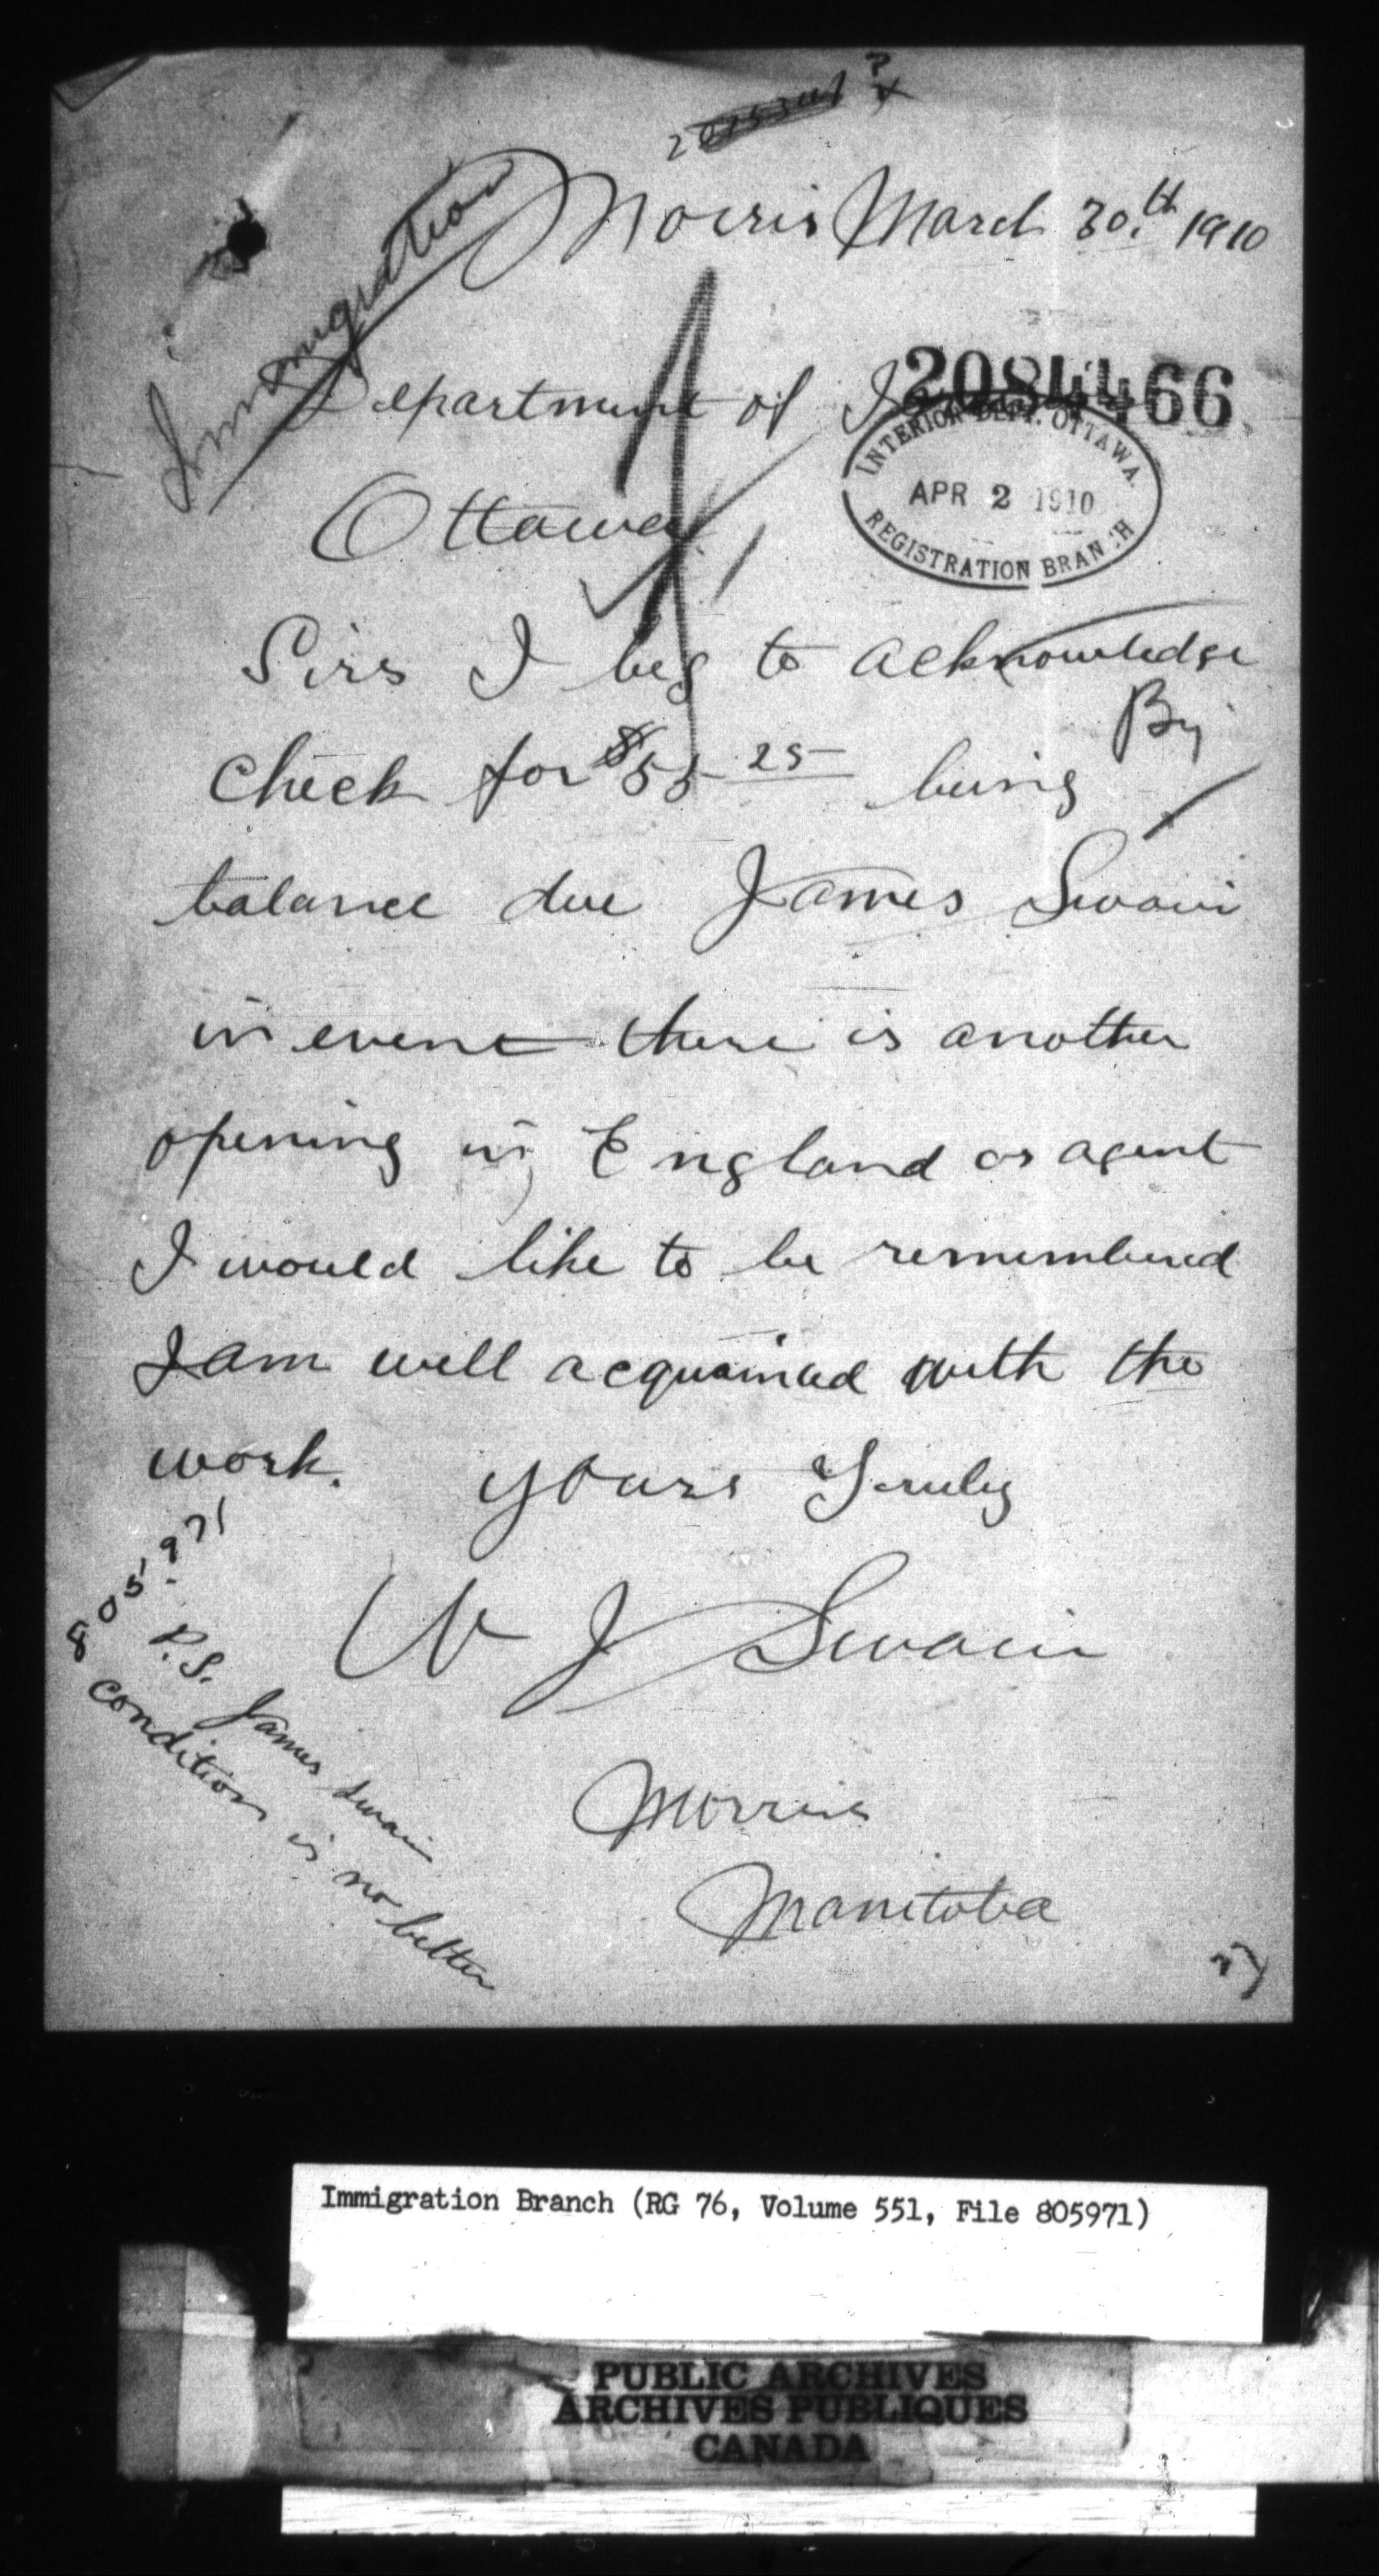 Morris March 30th 1910
Immigration
Department of I
2084466
Ottawa
INTERIOR DEPT. OTTAWA.
APR 2 1910
REGISTRATION BRANCH
Sirs I beg to acknowledge
By
check for $55 25 being
balance due James Swain
in event there is another
opening in England as agent
I would like to be remembered
I am well acquainted with the
work. yours Truly
805971
W J Swain
P.S. James Swain
condition is no better
Morris
Manitoba
Immigration Branch (RG 76, Volume 551, File 805971)
PUBLIC ARCHIVES
ARCHIVES PUBLIQUES
CANADA